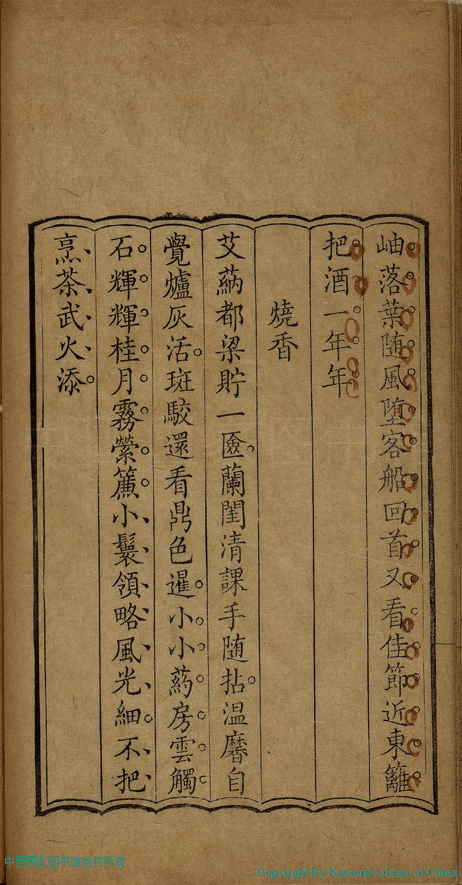 岫落葉随風墮客船回首又看佳節近東籬
把酒一年年
燒香
艾蒳都梁貯一匳蘭閨清課手随拈温黁自
覺爐灰活斑駮還看鼎色暹小小葯房雲觸
石輝輝桂月霧縈簾小鬟領略風光細不把
烹茶武火添
中國国家图书馆版权所有
Copyright By National Library of China